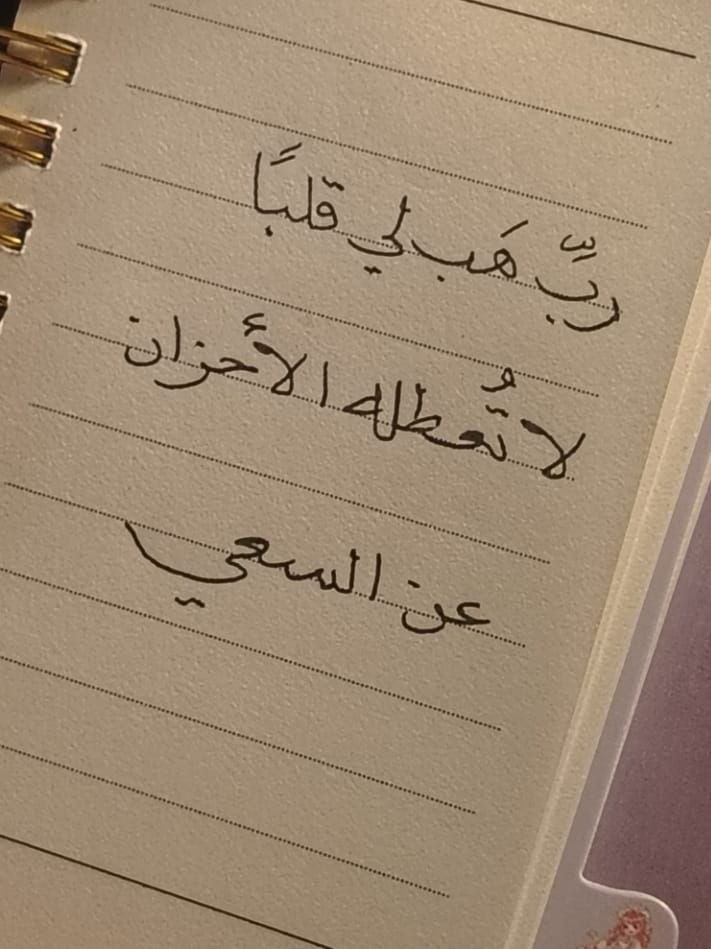 ربِّ هَب لي قلبًا
لا تُعطله الأحزان
عن السعي